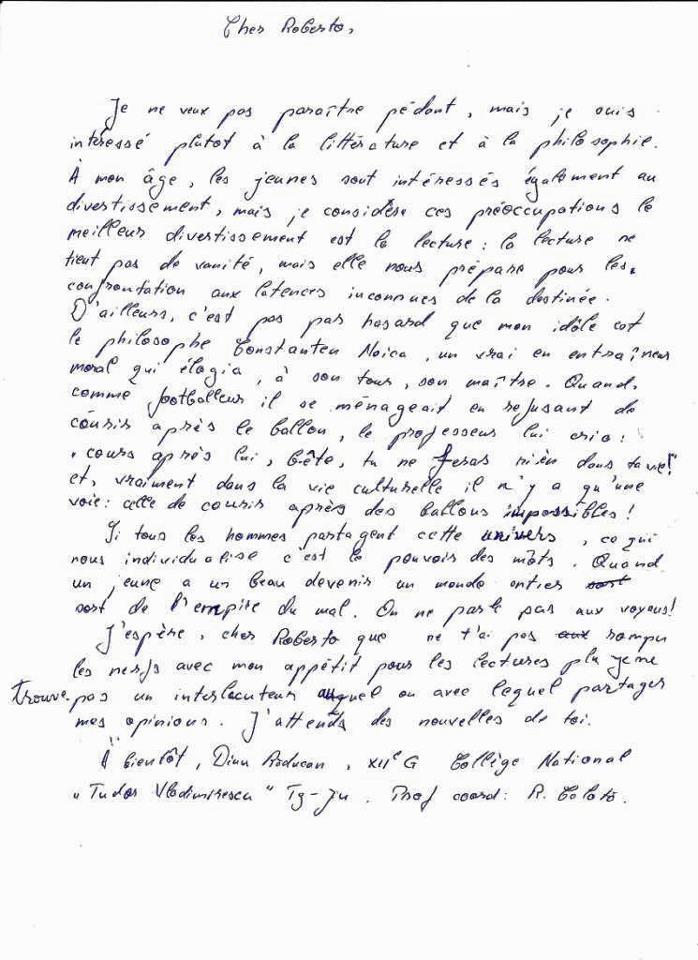 Cher Roberto,
Je ne veux pas paraître pédant, mais je suis
intéressé plutot à la littérature et à la philosophie.
À mon âge, les jeunes sont intéressés également au
divertissement, mais je considère ces préoccupations le
meilleur divertissement est la lecture : la lecture ne
tient pas de vanité, mais elle nous prépare pour les
confrontation aux latences inconnues de la destinée.
D'ailleurs, c'est pas par hasard que mon idôle est
le philosophe Constanten Noica, un vrai en entraîneur
moral qui élogia, à son tour, son maître. Quand,
comme footballeur il se ménageait en refusant de
courir après le ballon, le professeur lui cria :
"cours après lui, bête, tu ne feras rien dans ta vie!"
et, vraiment dans la vie culturelle il n'y a qu'une
voie : celle de courir après des ballons impossibles !
Si tous les hommes partagent cette univers, ce qui
nous individualise c'est le pouvoir des mots. Quand
un jeune a un beau devenir un monde entier
sort de l'empire du mal. On ne parle pas aux voyous!
J'espère, cher Roberto que ne t'ai pas rompu
les nerfs avec mon appétit pour les lectures je ne
trouve pas un interlocuteur auquel ou avec lequel partager
mes opinions. J'attends des nouvelles de toi.
À bientôt, Dinu Răducan, XIIe G Collège National
"Tudor Vladimirescu" Tg-Jiu. Prof coord: R.